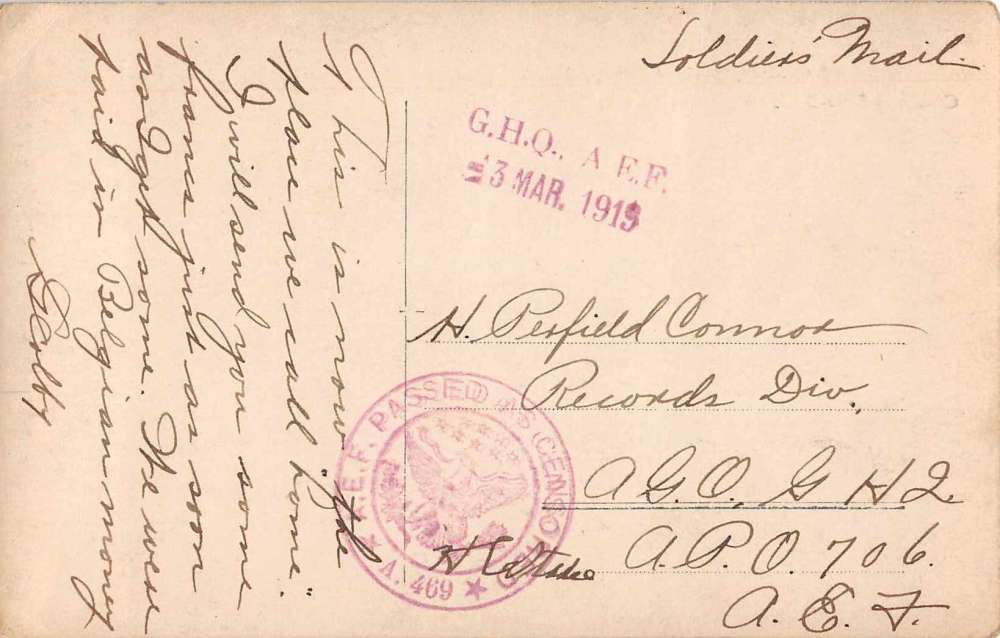 Soldiers' Mail.
G.H.Q., A E.F.
13 MAR. 1919
This is now "the
place we call home."
I will send you some
francs just as soon
as I get some. We were
paid in Belgian money
Colby
H. Penfield Connor
Records Div.,
A G. O, G H Q.
A. P. O. 706.
A. E. F.
A.E.F. PASSED AS CENSORED
A. 469